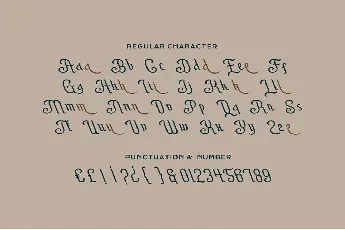 REGULAR CHARACTER
Aaa Bb Cc Ddd Eee Ff
Gg Hhh Iii Jj Kkk Lll
Mmm Nnn Oo Pp Qq Rr Ss
Tt Uuu Vv Ww Xx Yy Zzz
PUNCTUATION & NUMBER
€ £ \ | ? ¿ { } & 0123456789